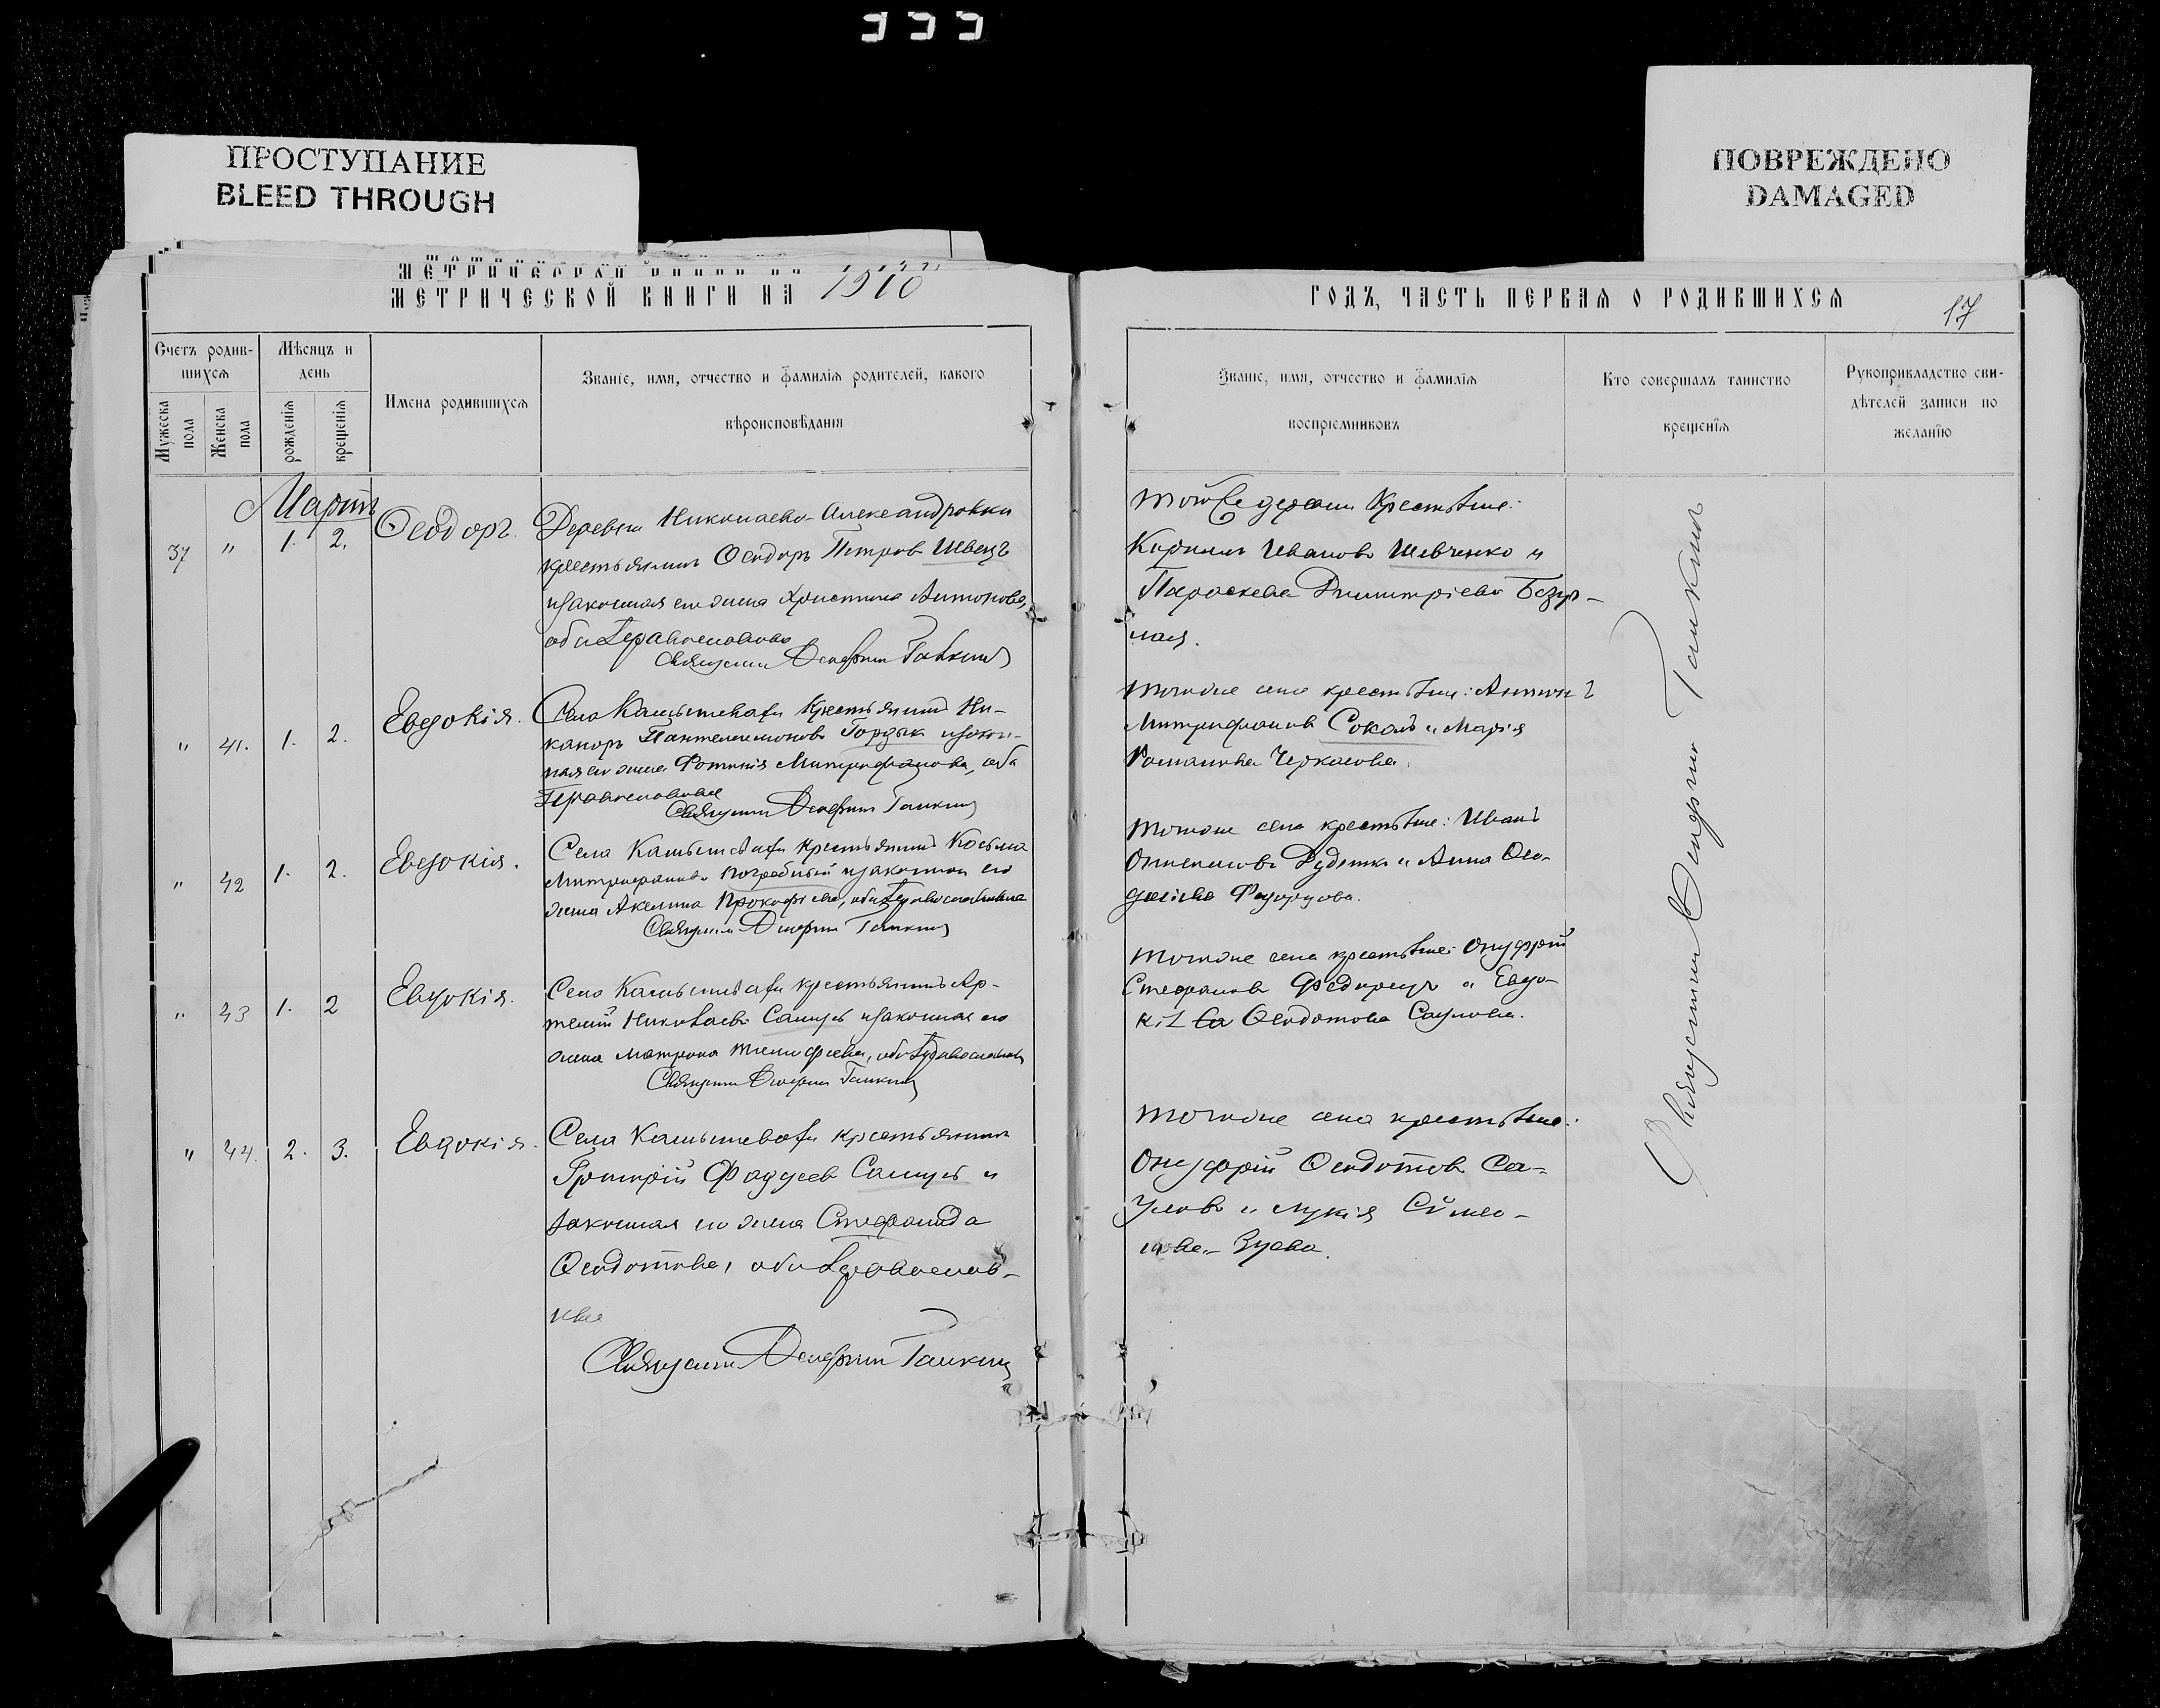 ПРОСТУПАНИЕ
BLEED THROUGH
ПОВРЕЖДЕНО
DAMAGED
МЕТРИЧЕСКОЙ КНИГИ НА 1910
ГОДЪ, ЧАСТЬ ПЕРВАѦ О РОДИВШИХСѦ
17
Счетъ родив-
шихсѧ
Мѣсяцъ и
день
Имена родившихсѧ
Званіе, имя, отчество и фамиліѧ родителей, какого
вѣроисповѣданіѧ
Мужеска
пола
Женска
пола
рожденіѧ
крещеніѧ
Званіе, имя, отчество и фамиліѧ
воспріемниковъ
Кто совершалъ таинство
крещеніѧ
Рукоприкладство сви-
дѣтелей записи по
желанію
Мартъ
37 " 1. 2. Ѳеодоръ.
Деревни Николаево-Александровки
крестьянинъ Ѳеодоръ Петровъ Швецъ
и законная его жена Христина Антонова,
оба православные
Священникъ Галкинъ
Той же деревни крестьяне:
Кириллъ Ивановъ Шевченко и
Параскева Димитріева Безр-
ная.
" 41. 1. 2. Евдокія.
Села Камышевахи крестьянинъ Ни-
каноръ Пантелеимоновъ Гордыя и закон-
ная его жена Фотинія Митрофанова, оба
православные
Священникъ Галкинъ
Того же села крестьяне: Антонъ
Митрофановъ Соколъ и Марія
Романова Черкасова.
" 42 1. 2. Евдокія.
Села Камышевахи крестьянинъ Косьма
Митрофановъ Погребный и законная его
жена Акелина Прокофіева, оба православные
Священникъ Галкинъ
Того же села крестьяне: Иванъ
и Анна Ѳео-
" 43 1. 2 Евдокія.
Села Камышевахи крестьянинъ Ар-
темій Николаевъ Самусь и законная его
жена Матрона Тимофеева, оба православные
Священникъ Галкинъ
Того же села крестьяне: Онуфрій
Стефановъ Федорецъ и Евдо-
кія Ѳеодотова Саулова.
" 44. 2. 3. Евдокія.
Села Камышевахи крестьянинъ
Фаддеевъ Самусь и
законная его жена Стефанида
Ѳеодотова, оба православ-
ные
Священникъ Галкинъ
Того же села крестьяне:
Онуфрій Ѳеодотовъ Са-
уловъ и Лукія Сѵмео-
нова Зуева.
Священникъ Галкинъ